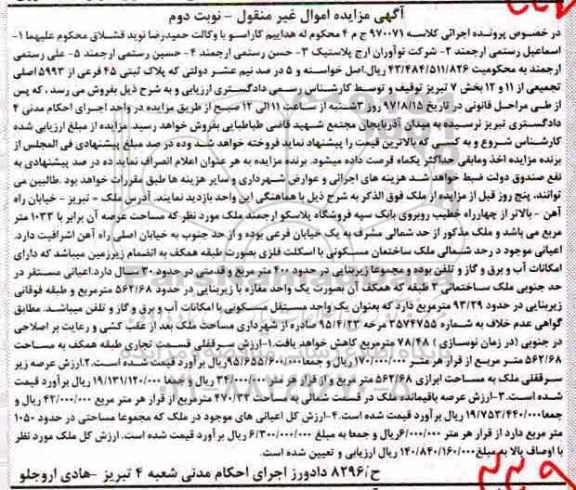 آگهی مزایده اموال غیر منقول - نوبت دوم
در خصوص پرونده اجرائی کلاسه ۹۷۰۰۷۱ ج م ۴ محکوم له هدا‌ییم کاراسو با وکالت حمیدرضا نوید قشلاق محکوم علیهما ۱-
اسماعیل رستمی ارجمند ۲- شرکت نوآوران ارج پلاستیک ۳- حسن رستمی ارجمند ۴- حسین رستمی ارجمند ۵- علی رستمی
ارجمند به محکومیت ۴۳/۴۸۴/۵۱۱/۸۲۶ ریال،اصل خواسته و ۵ در صد نیم عشر دولتی که پلاک ثبتی ۴۵ فرعی از ۵۹۹۳ اصلی
تجمیعی از ۱۱ و ۱۲ بخش ۷ تبریز توقیف و توسط کارشناس رسمی دادگستری ارزیابی و به شرح ذیل بفروش می رسد ، که پس
از طی مراحل قانونی در تاریخ ۹۷/۸/۱۵ روز ۳شنبه از ساعت ۱۱ الی ۱۲ صبح از طریق مزایده در واحد اجرای احکام مدنی ۴
دادگستری تبریز نرسیده به میدان آذربایجان مجتمع شهید قاضی طباطبایی بفروش خواهد رسید. مزایده از مبلغ ارزیابی شده
کارشناس شروع و به کسی که بالاترین قیمت را پیشنهاد نماید فروخته خواهد شد وده در صد مبلغ پیشنهادی فی المجلس از
برنده مزایده اخذ ومابقی حداکثر یکماه فرصت داده میشود. برنده مزایده به هر عنوان اعلام انصراف نماید ده در صد پیشنهادی به
نفع صندوق دولت ضبط خواهد شد هزینه های اجرائی و عوارض شهرداری و سایر هزینه ها طبق مقررات خواهد بود .طالبین می
توانند، پنج روز قبل از مزایده از ملک فوق الذکر به شرح ذیل با هماهنگی این واحد بازدید نمایند. آدرس ملک - تبریز - خیابان راه
آهن - بالاتر از چهارراه خطیب روبروی بانک سپه فروشگاه پلاسکو ارجمند ملک مورد نظر که مساحت عرصه آن برابر با ۱۰۳۳ متر
مربع می باشد و ملک مذکور از حد شمالی مشرف به یک خیابان فرعی بوده و از حد جنوب به خیابان اصلی راه آهن اشراقیت دارد.
اعیانی موجود در حد شمالی ملک ساختمان مسکونی با اسکلت فلزی بصورت طبقه همکف به انضمام زیرزمین میباشد که دارای
امکانات آب و برق و گاز و تلفن بوده و مجموعا زیربنایی در حدود ۴۰۰ متر مربع و قدمتی در حدود ۳۰ سال دارد.اعیانی مستقر در
حد جنوبی ملک ساختمانی ۲ طبقه که همکف آن بصورت یک واحد مغازه با زیربنایی در حدود ۵۶۲/۶۸ مترمربع و طبقه فوقانی
زیربنایی در حدود ۹۳/۲۹ مترمربع دارد که بعنوان یک واحد مستقل مسکونی با امکانات آب و برق و گاز و تلفن میباشد. مطابق
گواهی عدم خلاف به شماره ۳۵۷۴۷۵۵ مرخه ۹۵/۴/۲۳ صادره از شهرداری مساحت ملک بعد از عقب کشی و رعایت بر اصلاحی
در جنوبی (در زمان نوسازی ) ۷۸/۴۸ مترمربع کاهش خواهد یافت.۱-ارزش سرقفلی قسمت تجاری طبقه همکف به مساحت
۵۶۲/۶۸ متر مربع از قرار هر متر ۱۷۰/۰۰۰/۰۰۰ ریال و جمعا۹۵/۶۵۵/۶۰۰/۰۰۰ریال برآورد قیمت شده است.۲.ارزش عرصه زیر
سرقفلی ملک به مساحت ابرازی ۵۶۲/۶۸ متر مربع و از قرار هر متر ۳۴/۰۰۰/۰۰۰ ریال و جمعا ۱۹/۱۳۱/۱۲۰/۰۰۰ ریال برآورد قیمت
شده است.۳-ارزش عرصه باقیمانده ملک در قست شمالی به مساحت ۴۷۰/۳۲ مترمربع از قرار هر متر مربع ۴۲/۰۰۰/۰۰۰ ریال و
جمعا۱۹/۷۵۳/۴۴۰/۰۰۰ ریال برآورد قیمت شده است.۴-ارزش کل اعیانی های موجود در ملک که مجموعا مساحتی در حدود ۱۰۵۰
متر مربع دارد از قرار هر متر ۶/۰۰۰/۰۰۰ریال و جمعا به مبلغ ۶/۳۰۰/۰۰۰/۰۰۰ ریال برآورد قیمت شده است. ارزش کل ملک مورد نظر
با اوصاف بالا به مبلغ۱۴۰/۸۴۰/۱۶۰/۰۰۰ ریال ارزیابی و تعیین شده است.
ح/۸۲۹۶ دادورز اجرای احکام مدنی شعبه ۴ تبریز -هادی اروجلو
۲۲۹